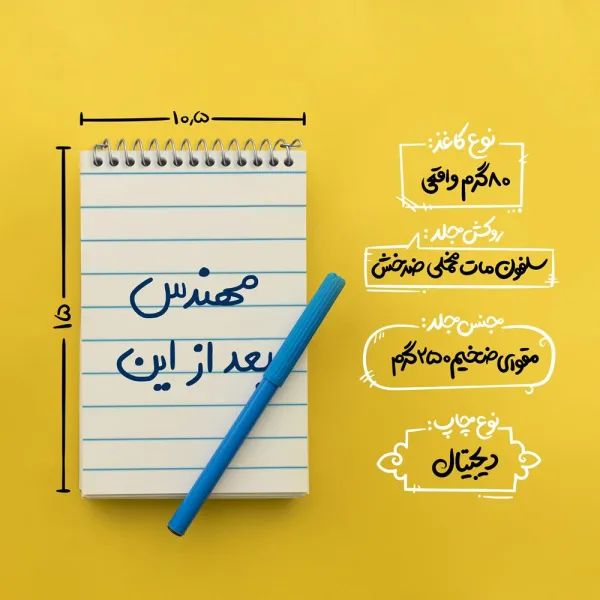 ۱۰٫۵
۱۵
مهندس
بعد از این
نوع کاغذ:
۸۰گرم واقعی
روکش مجلد:
سلفون مات مخملی ضدخش
جنس جلد:
مقوای ضخیم ۲۵۰گرم
نوع چاپ:
دیجیتال